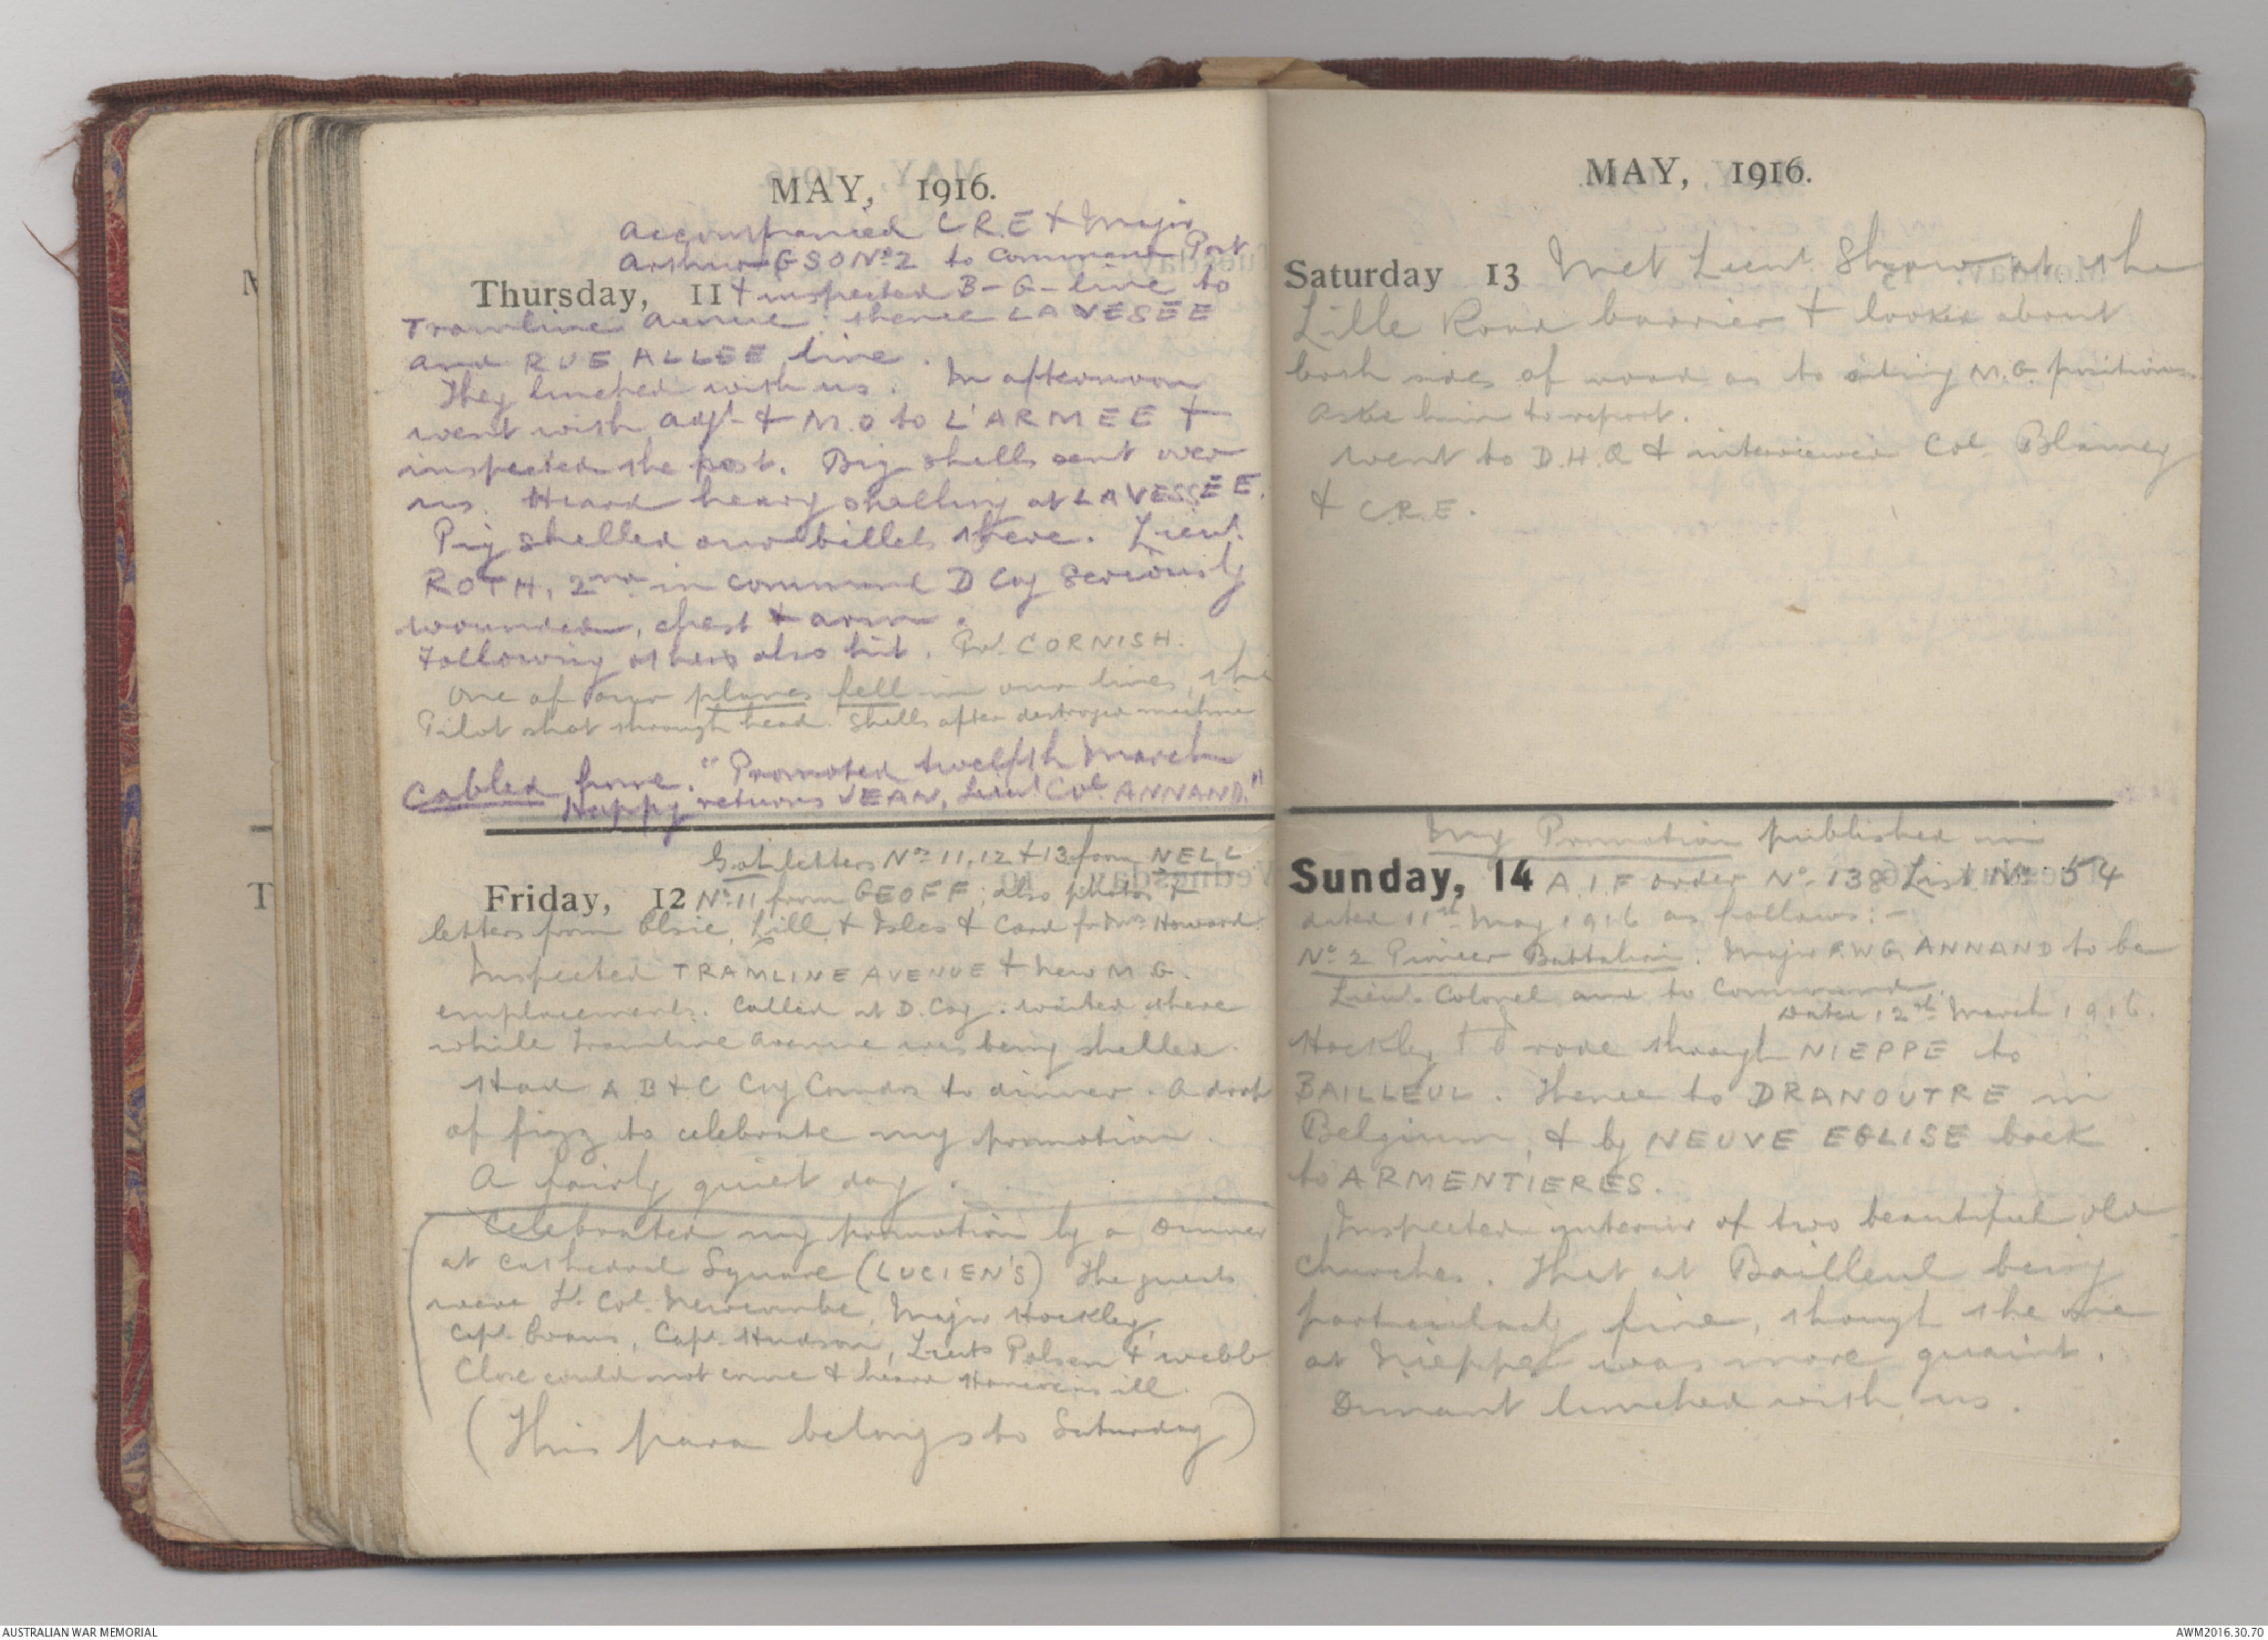 MAY, 1916.
accompanied C.R.E & Major
Arthur GSO No 2 to Command Post
Thursday, 11 & inspected B-G-line to
Tramline Avenue, thence LA VESÉE
and RUE ALLEE line.
They lunched with us. In afternoon
went with adjt & M.O to L'ARMEE &
inspected the post. Big shells sent over
us. Heard heavy shelling at LA VESSÉE.
Pig shelled our billets there. Lieut.
ROTH, 2nd in command D Coy seriously
wounded, chest & arm.
Following others also hit. Pvt. CORNISH.
One of our planes fell in our lines, the
Pilot shot through head. Shells after destroyed machine
Cabled home. "Promoted twelfth March
Happy returns JEAN, Lieut Col. ANNAND."
Got letters Nos 11, 12 & 13 from NELL
Friday, 12 No 11 from GEOFF; also photos &
letters from Elsie, Lill & Isles & Card fr Mrs Howard.
Inspected TRAMLINE AVENUE & New M.G.
emplacements. Called at D. Coy. waited there
while Tramline Avenue was being shelled.
Had A B & C Coy Comdrs to dinner. A drop
of fizz to celebrate my promotion.
A fairly quiet day.
Celebrated my promotion by a Dinner
at Cathedral Square (LUCIEN'S) The guests
were Lt. Col. Newcombe, Major Hockley,
Capt. Evans, Capt. Hudson, Lieuts Polsen & Webb
Close could not come & heard is ill.
(This para belongs to Saturday)
MAY, 1916.
Saturday 13 Met Lieut. Shaw at the
Lille Road barrier & looked about
both sides of road as to siting M.G. positions.
Asked him to report.
Went to D.H.Q & interviewed Col. Blamey
& C.R.E.
My Promotion published in
Sunday, 14 A.I.F order No. 138 List No 54
dated 11th May 1916 as follows:-
No 2 Pioneer Battalion. Major F.W.G. ANNAND to be
Lieut. Colonel and to Command.
Dated 12th March 1916.
Hockley & I rode through NIEPPE to
BAILLEUL. Thence to DRANOUTRE in
Belgium, & by NEUVE EGLISE back
to ARMENTIERES.
Inspected interior of two beautiful old
churches. That at Bailleul being
particularly fine, though the one
at Nieppe was more quaint.
Dumant lunched with us.
AUSTRALIAN WAR MEMORIAL
AWM2016.30.70